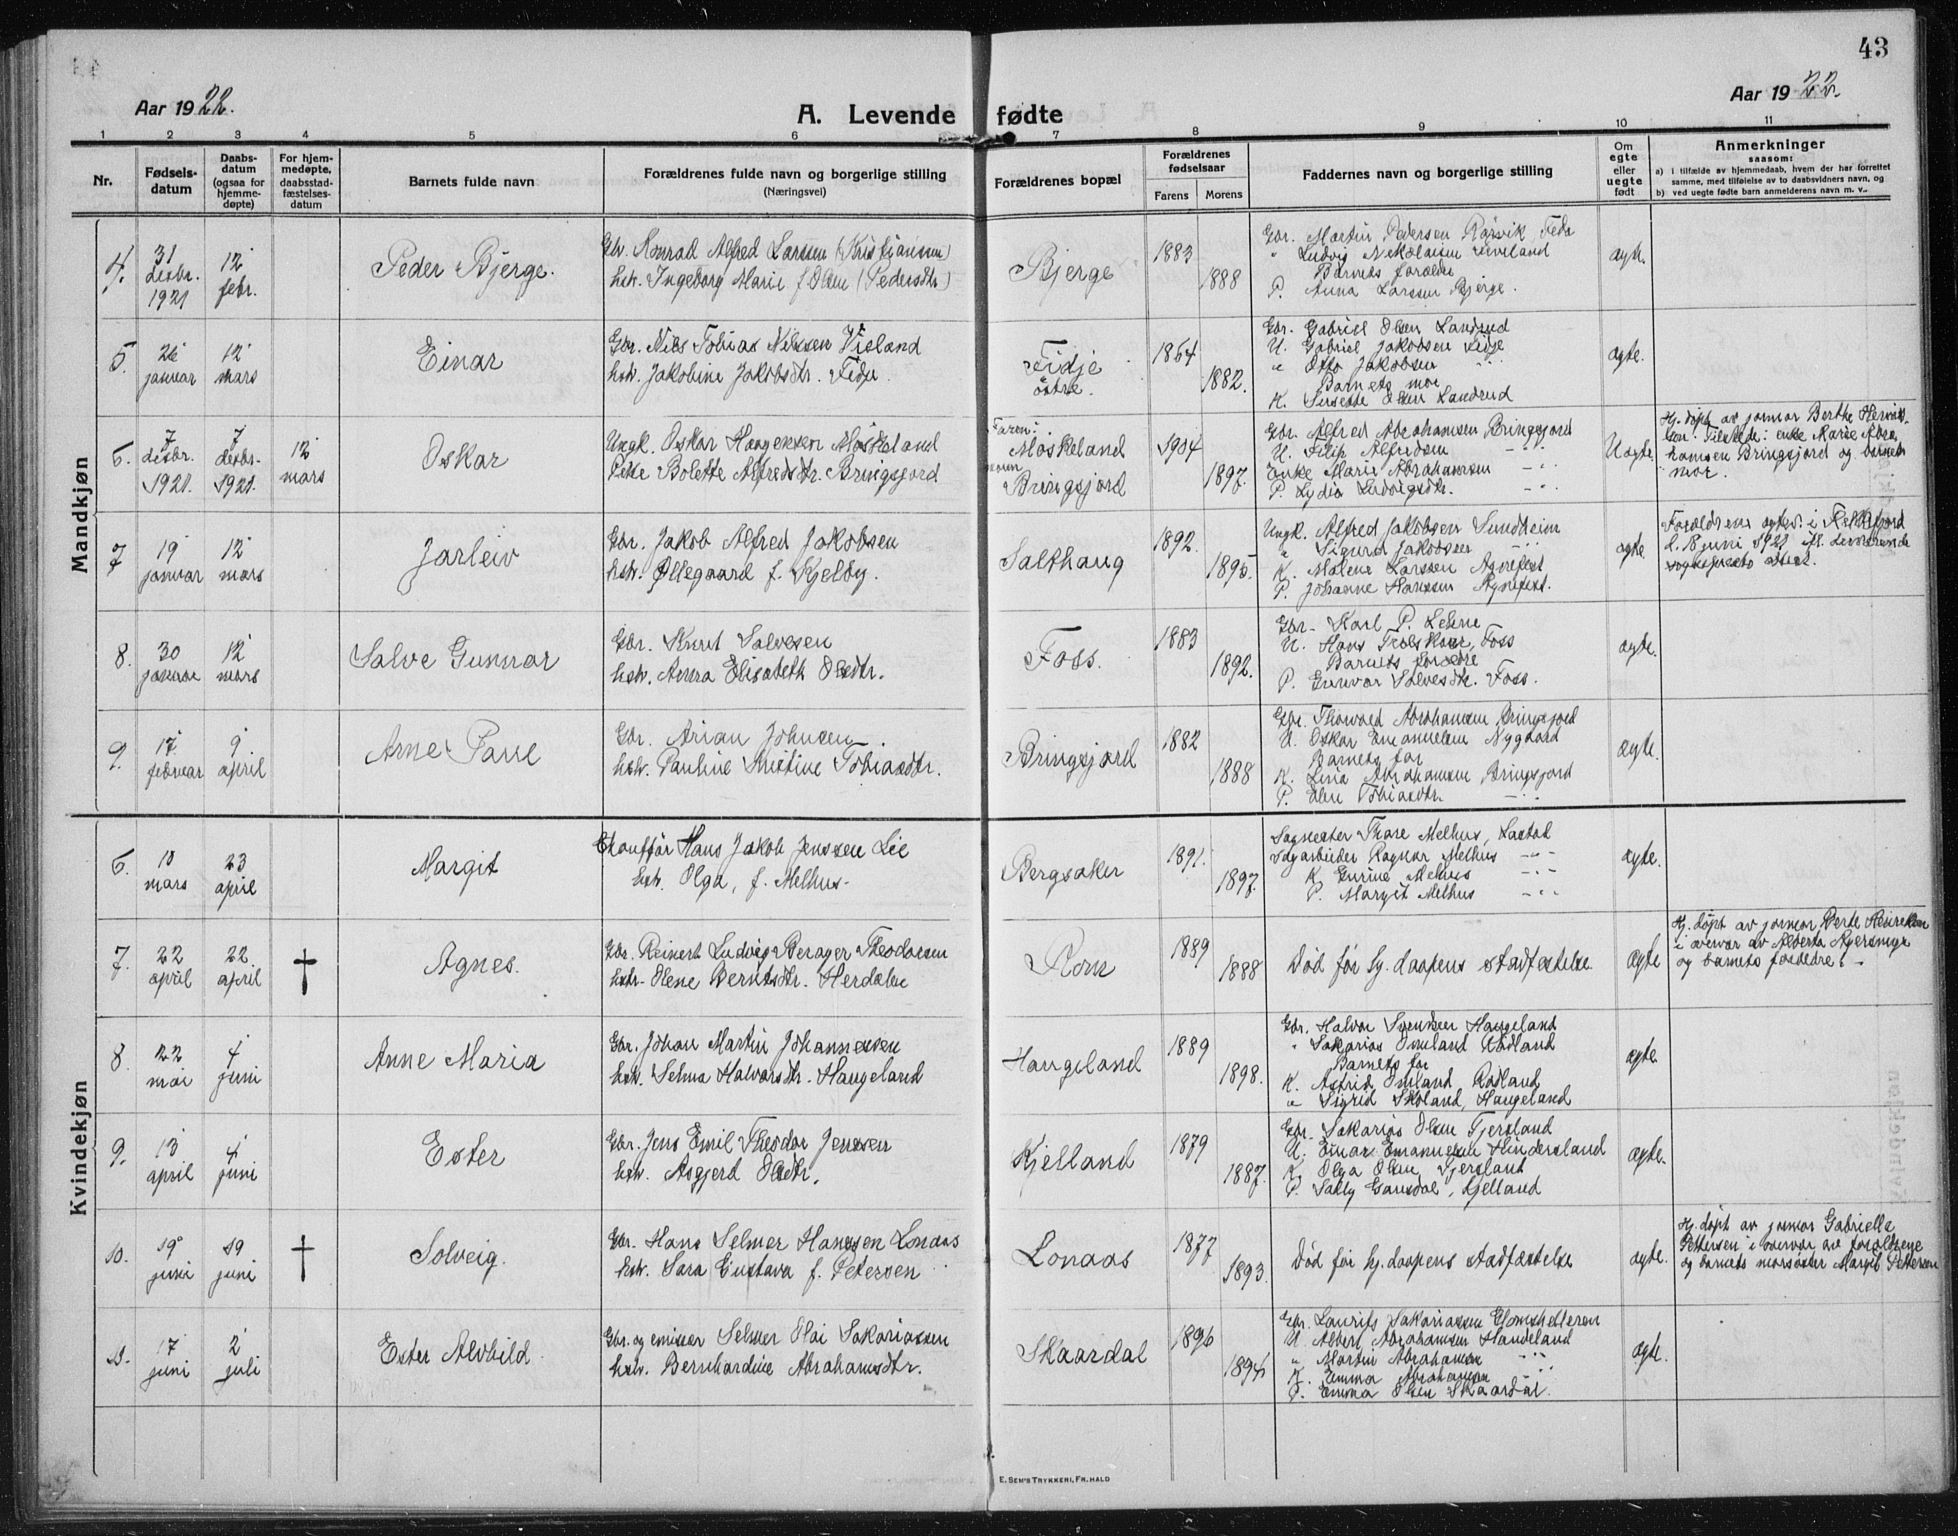 43
Aar 1922.
A. Levende fødte
Aar 1922.
1 2 3 4 5 6 7 8 9 10 11
Nr.
Fødsels-
datum
Daabs-
datum
(ogsaa for
hjemme-
døpte)
For hjem-
medøpte,
daabsstad-
fæstelses-
datum
Barnets fulde navn
Forældrenes fulde navn og borgerlige stilling
(Næringsvei)
Forældrenes bopæl
Forældrenes
fødselsaar
Farens Morens
Faddernes navn og borgerlige stilling
Om
egte
eller
uegte
født
Anmerkninger
saasom:
a) i tilfælde av hjemmedaab, hvem der har forrettet
samme, med tilføielse av to daabsvidners navn, og
b) ved uegte fødte barn anmelderens navn m. v.
Mandkjøn
4. 31 desbr. 1921
12 febr.
Peder Bjerge.
Gbr. Konrad Alfred Larssen (Kristjanssen)
hst. Ingeborg Marie f. Olsen (Pedersdtr.)
Bjerge
1883
1888
Gbr. Martin Pedersen Rørvik Feda
" Ludvig Nikolaisen
Barnets forældre
P. Anna Larssen Bjerge.
ægte.
5. 26 januar
12 mars
Einar
Gbr. Nils Tobias Nilssen Vieland
hst. Jakobine Jakobsdtr. Fidje.
Fidje
østre.
1864
1882.
Gbr. Gabriel Olsen Landrud
U. Gabriel Jakobsen Fidje
" Otto Jakobsen "
Barnets mor
K. Olsen Landrud
ægte.
6. 7 desbr. 1921.
7 desbr. 1921.
12 mars
Oskar
Ungk. Oskar Haagensen Møskeland
Pike Bolette Alfredsdtr. Bringsjord
Faren:
Møskeland
Bringsjord
1904
1897.
Gbr. Alfred Abrahamsen Bringsjord
U. Filip Alfredsen -"-
Enke Marie Abrahamsen -"-
P. Lydia Ludvigsdtr. -"-
Uægte.
Hj. døpt av jormor Berthe Henriks-
sen. Tilstede: enke Marie Abra-
hamsen Bringsjord og barnets
mor.
7 19 januar
12 mars
Jarleiv
Gbr. Jakob Alfred Jakobsen
hst. Øllegaard f. Kjelby.
Salthaug
1892.
1895.
Ungk. Alfred Jakobsen Sundheim
" Sigurd Jakobsen -"-
K. Malene Larssen Agnefest
P. Johanne Hanssen Agnefest.
ægte
Forældrene ægtev. i Flekkefjord
d. 18 juni 1921
8. 30 januar
12 mars
Salve Gunnar
Gbr. Knut Salvesen
hst. Anna Elisabeth Olsdtr.
Foss.
1883
1892.
Gbr. Karl P. Lehne
U. Hans Foss
Barnets forældre
P. Gunvor Salvesdtr. Foss.
ægte.
9. 17 februar
9 april
Arne Paul
Gbr. Arian Johnsen
hst. Pauline Kristine Tobiasdtr.
Bringsjord
1882
1888
Gbr. Thorvald Abrahamsen Bringsjord
U. Oskar Emanuelsen Nygaard
Barnets far
K. Lina Abrahamsen Bringsjord
P. Tobiasdtr. -"-
ægte.
Kvindekjøn
6. 10 mars
23 april
Margit
Chauffør Hans Jakob Jenssen Lie
hst. Olga, f. Melhus.
Bergsaker
1891.
1897.
Sagmester Thore Melhus, Lastad
Sagarbeider Ragnar Melhus -"-
K. Gurine Melhus -"-
P. Margit Melhus -"-
ægte.
7. 22 april
22 april
†
Agnes.
Gbr. Reinert Ludvig Berager Theodorsen
hst. Olene Berntsdtr. Herdalen
Rom
1889
1888
Død før hj. daapens stadfæstelse
ægte
Hj. døpt av jormor Berte Henriksen
i overvær av Alberta
og barnets forældre.
8 22 mai
4 juni
Anne Maria
Gbr. Johan Martin Johannessen
hst. Selma Halvorsdtr. Haugeland
Haugeland
1889
1898.
Gbr. Halvor Svendsen Haugeland
" Sakarias Omland Rødland
Barnets far
K. Astrid Omland Rødland
" Sigrid Skoland, Haugeland
ægte.
9. 13 april
4 juni
Ester
Gbr. Jens Emil Theodor Jenssen
hst. Asgjerd Olsdtr.
Kjelland
1879
1887.
Gbr. Sakarias Olsen Fjersland
U. Einar Emanuelsen Hindersland
K. Olga Olsen Fjersland
P. Sally Gausdal, Kjelland
ægte.
10. 19 juni
19 juni
†
Solveig.
Gbr. Hans Selmer Hanssen Lonaas
hst. Sara Gustava f. Petersen
Lonaas
1877
1893.
Død før hj. daapens stadfæstelse
ægte.
Hj. døpt av jormor Gabrielle
Pettersen i overvær av forældrene
og barnets morsøster Margit Pettersen
11. 17 juni
2 juli
Ester Alvhild
Gbr. og emissær Selmer Olai Sakariassen
hst. Bernhardine Abrahamsdtr.
Skaardal
1896
1894
Gbr. Laurits Sakariassen
U. Albert Abrahamsen Haugeland
" Martin Abrahamsen -"-
K. Emma Abrahamsen -"-
P. Emma Olsen Skaardal.
ægte.
E. Sem's Trykkeri, Fr.hald